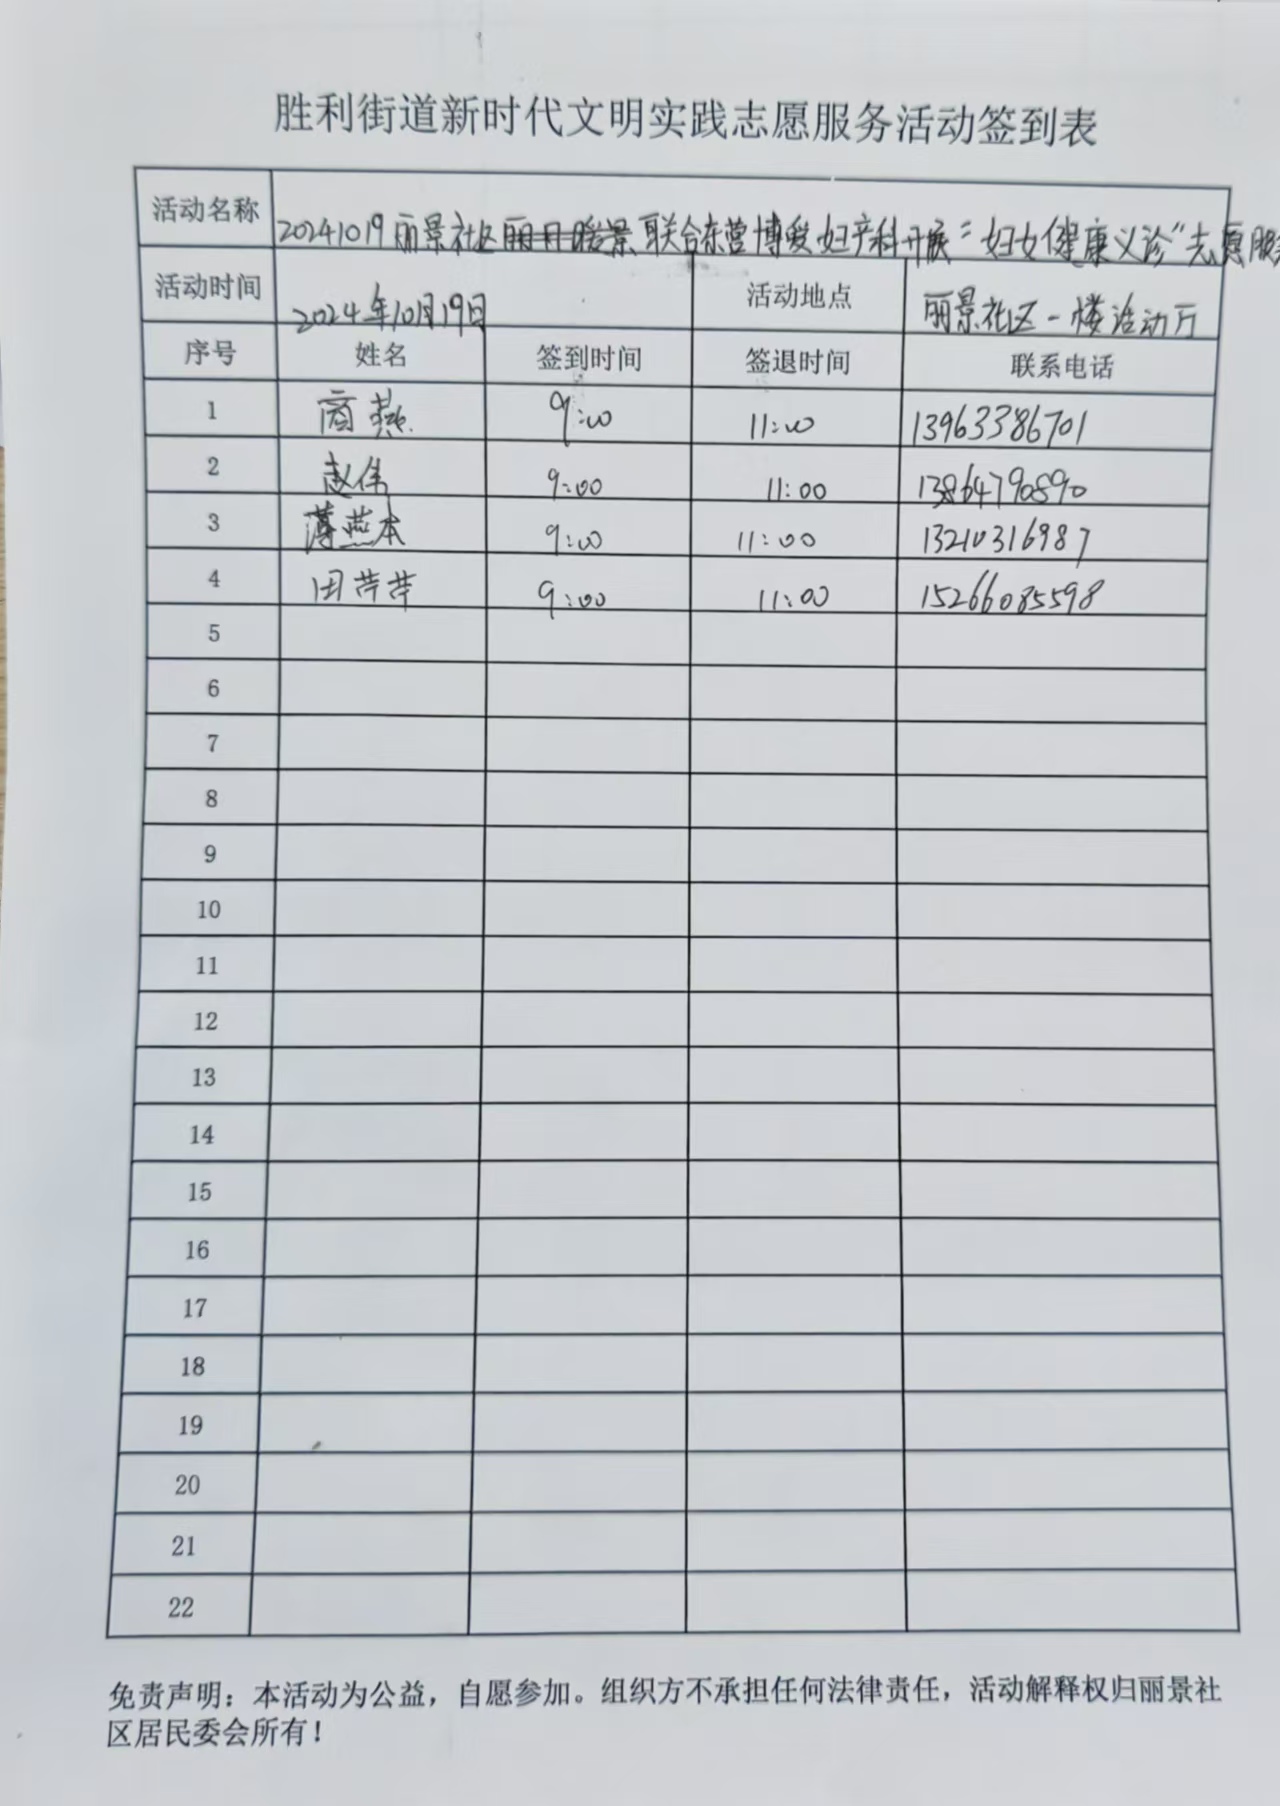 胜利街道新时代文明实践志愿服务活动签到表
活动名称 20241019丽景社区丽日暖景联合东营博爱妇产科开展"妇女健康义诊"志愿服务
活动时间 2024年10月19日 活动地点 丽景社区一楼活动厅
序号 姓名 签到时间 签退时间 联系电话
1 商燕 9:00 11:00 13963386701
2 赵伟 9:00 11:00 13864790890
3 薄燕本 9:00 11:00 13210316987
4 田芹芹 9:00 11:00 15266085598
5
6
7
8
9
10
11
12
13
14
15
16
17
18
19
20
21
22
免责声明：本活动为公益，自愿参加。组织方不承担任何法律责任，活动解释权归丽景社
区居民委会所有！